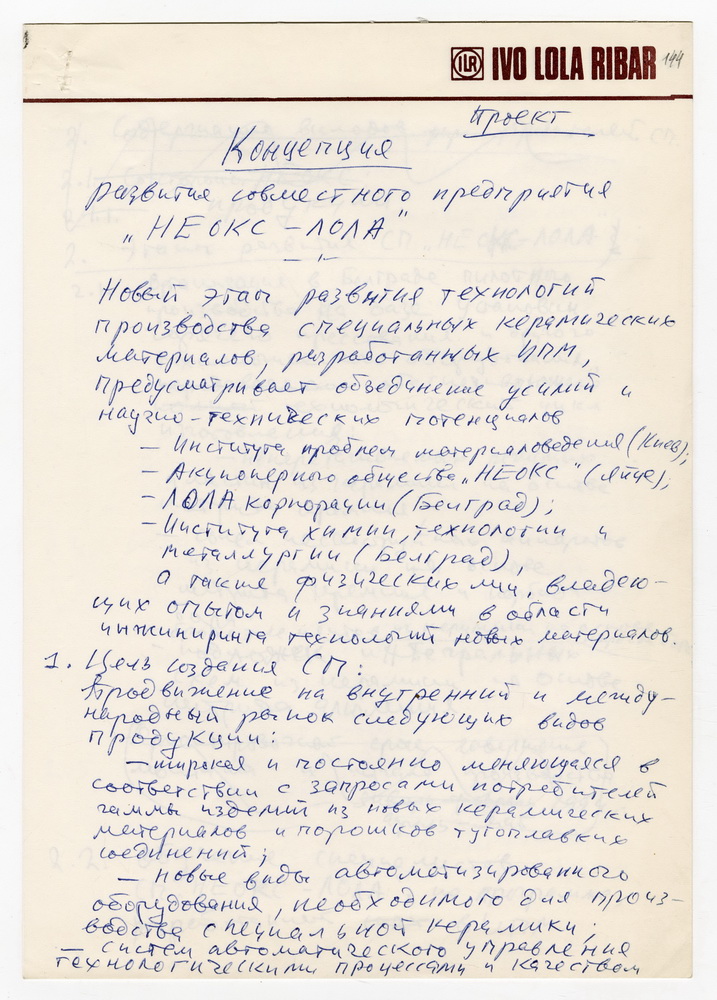 ILR IVO LOLA RIBAR 144
Проект
Концепция
развития совместного предприятия
„НЕОКС – ЛОЛА"
Новый этап развития технологий
производства специальных керамических
материалов, разработанных ИПМ,
предусматривает объединение усилий и
научно-технических потенциалов
– Института проблем материаловедения (Киев);
– Акционерного общества „НЕОКС" (Яйце);
– ЛОЛА корпорации (Белград);
– Института химии, технологии и
металлургии (Белград),
а также физических лиц, владею-
щих опытом и знаниями в области
инжиниринга технологий новых материалов.
1. Цель создания СП:
Продвижение на внутренний и между-
народный рынок следующих видов
продукции:
– широкая и постоянно меняющаяся в
соответствии с запросами потребителей
гаммы изделий из новых керамических
материалов и порошков тугоплавких
соединений;
– новые виды автоматизированного
оборудования, необходимого для произ-
водства специальной керамики;
– систем автоматического управления
технологическими процессами и качеством